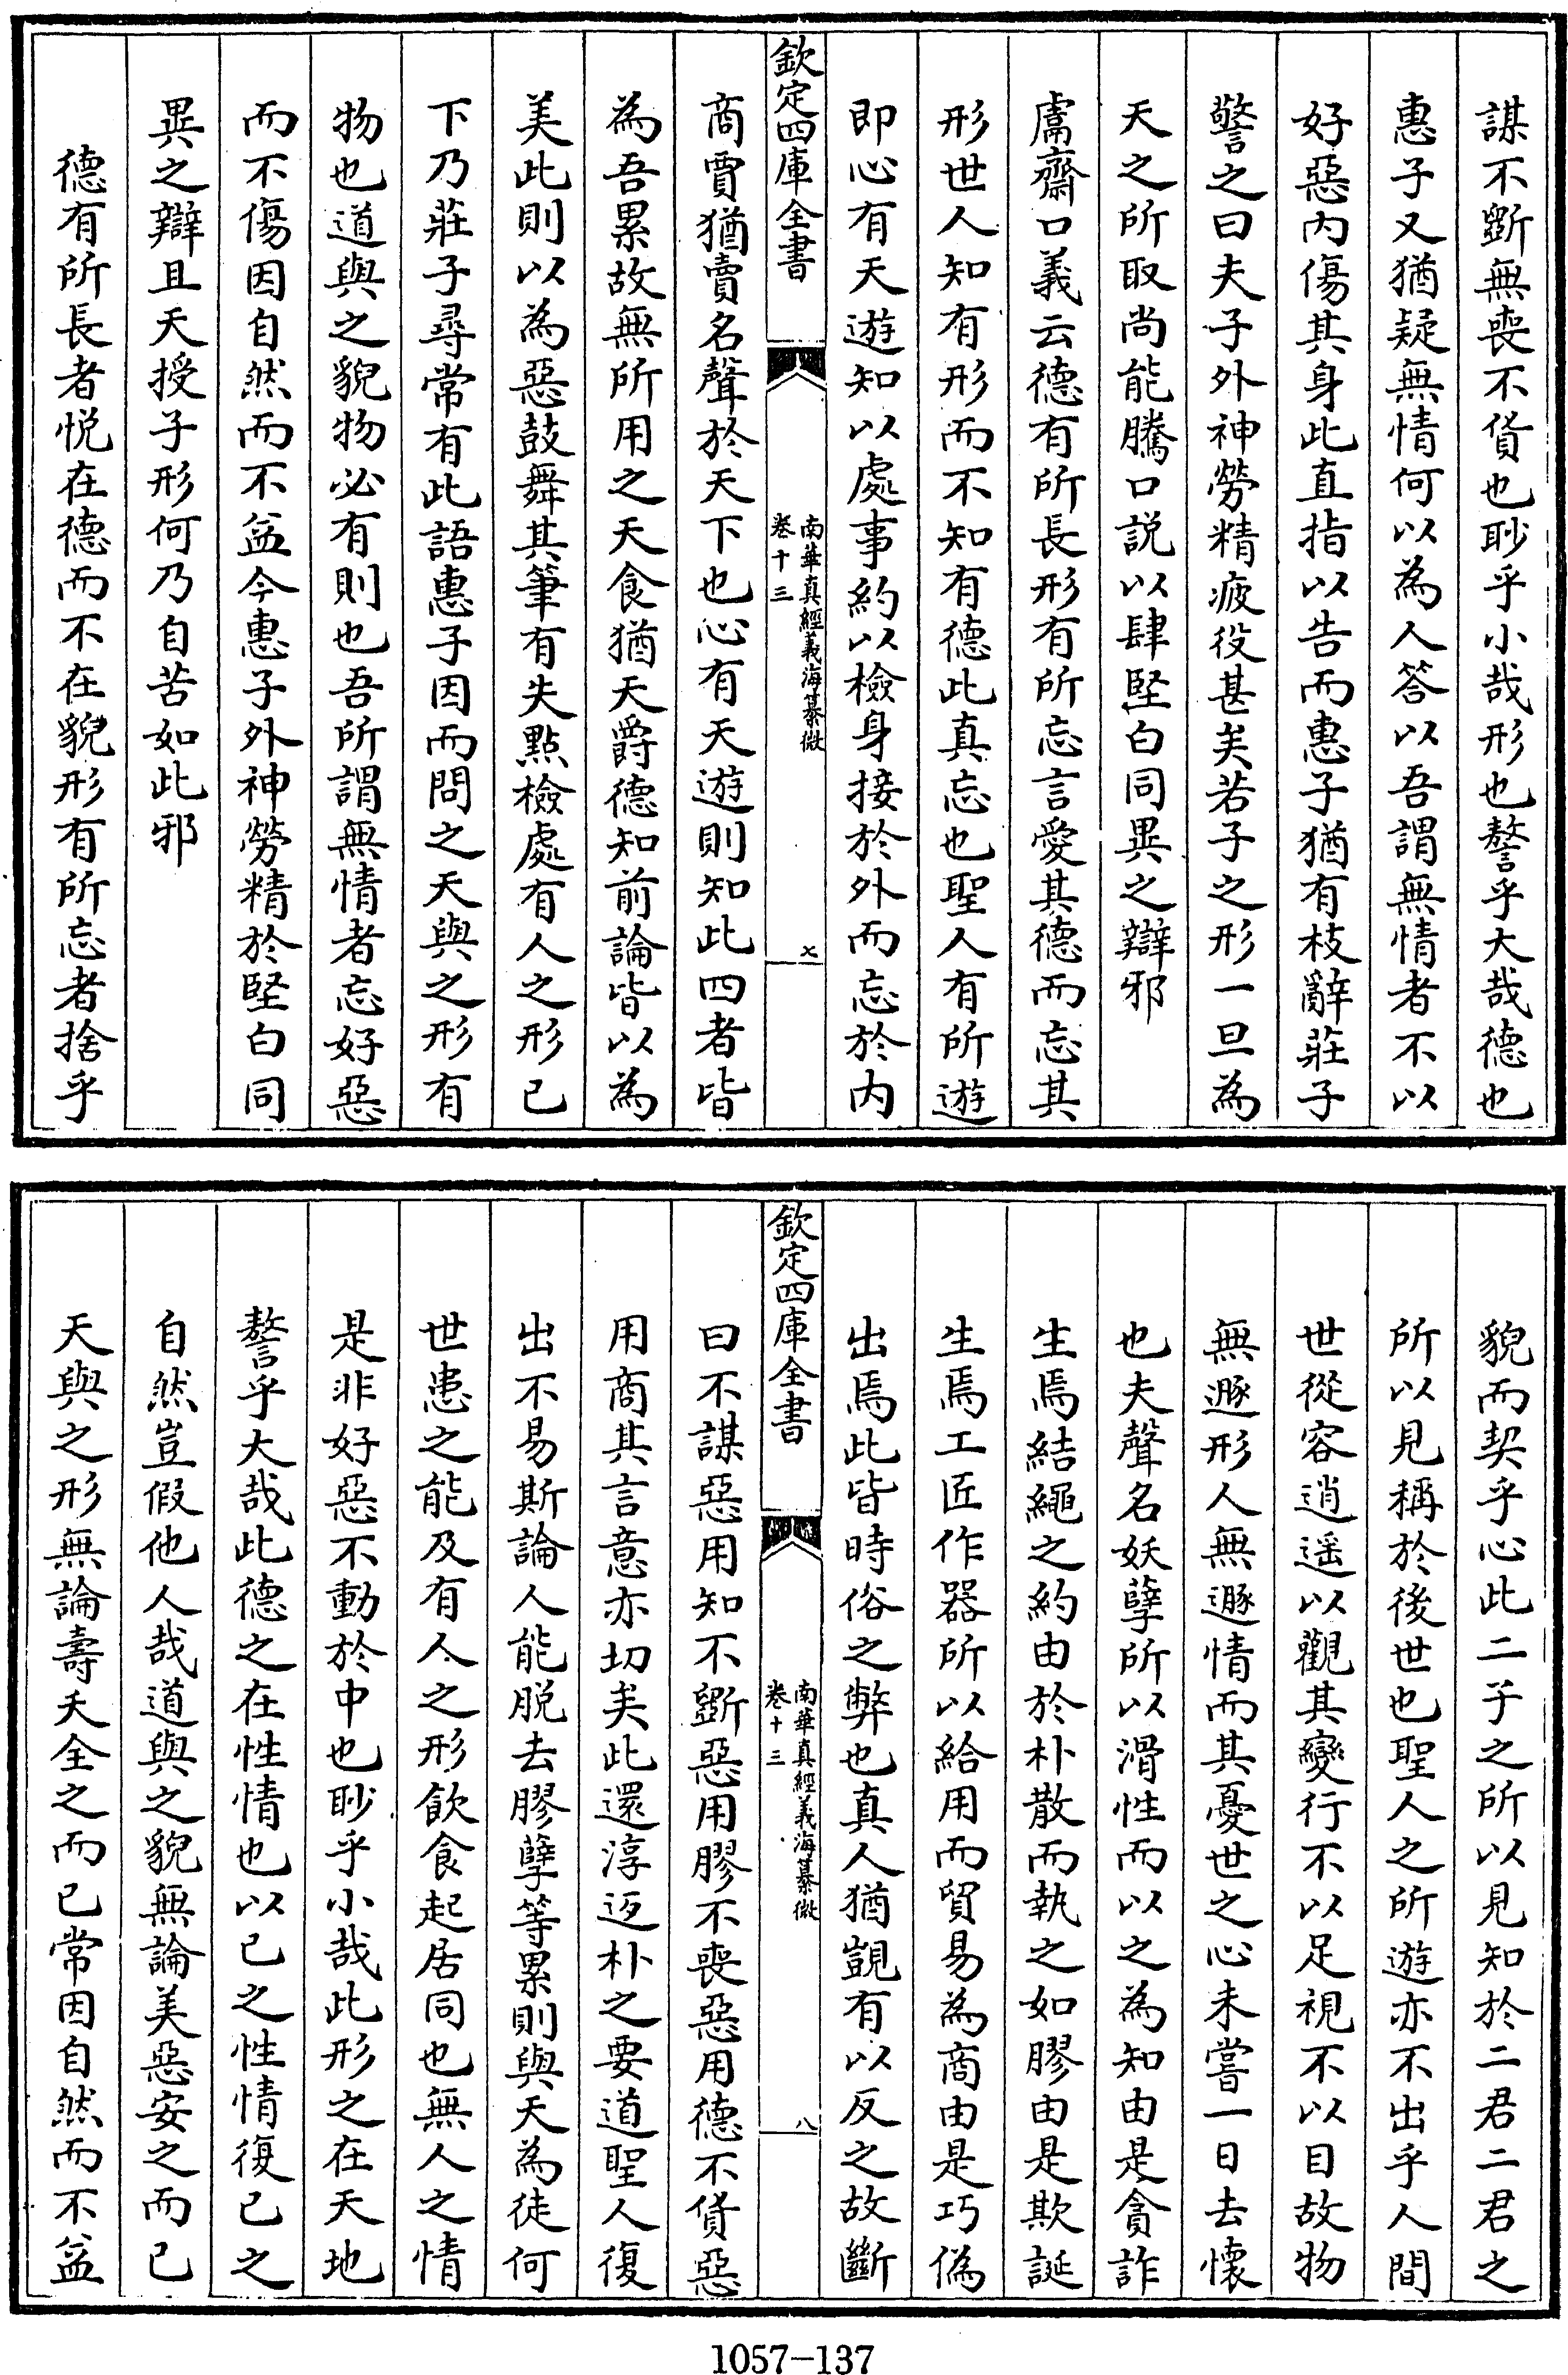 謀不斵無喪不貨也眇乎小哉形也謷乎大哉德也
惠子又猶疑無情何以為人答以吾謂無情者不以
好惡内傷其身此直指以告而惠子猶有枝辭莊子
警之曰夫子外神勞精疲役甚矣若子之形一旦為
天之所取尚能騰口説以肆堅白同異之辯邪
鬳齋口義云德有所長形有所忘言愛其德而忘其
形世人知有形而不知有德此真忘也聖人有所遊
即心有天遊知以處事約以檢身接於外而忘於内
欽定四庫全書
南華真經義海纂微
卷十三
七
商賈猶賣名聲於天下也心有天遊則知此四者皆
為吾累故無所用之天食猶天爵德知前論皆以為
美此則以為惡鼓舞其筆有失點檢處有人之形已
下乃莊子尋常有此語惠子因而問之天與之形有
物也道與之貌物必有則也吾所謂無情者忘好惡
而不傷因自然而不益今惠子外神勞精於堅白同
異之辯且天授子形何乃自苦如此邪
德有所長者悦在德而不在貌形有所忘者捨乎
貌而契乎心此二子之所以見知於二君二君之
所以見稱於後世也聖人之所遊亦不出乎人間
世從容逍遥以觀其變行不以足視不以目故物
無遯形人無遯情而其憂世之心未嘗一日去懷
也夫聲名妖孽所以滑性而以之為知由是貪詐
生焉結繩之約由於朴散而執之如膠由是欺誕
生焉工匠作器所以給用而貿易為商由是巧偽
出焉此皆時俗之弊也真人猶覬有以反之故斷
欽定四庫全書
南華真經義海纂微
卷十三
八
曰不謀惡用知不斵惡用膠不喪惡用德不貨惡
用商其言意亦切矣此還淳返朴之要道聖人復
出不易斯論人能脱去膠孽等累則與天為徒何
世患之能及有人之形飲食起居同也無人之情
是非好惡不動於中也眇乎小哉此形之在天地
謷乎大哉此德之在性情也以已之性情復已之
自然豈假他人哉道與之貌無論美惡安之而已
天與之形無論壽夭全之而已常因自然而不益
1057-137